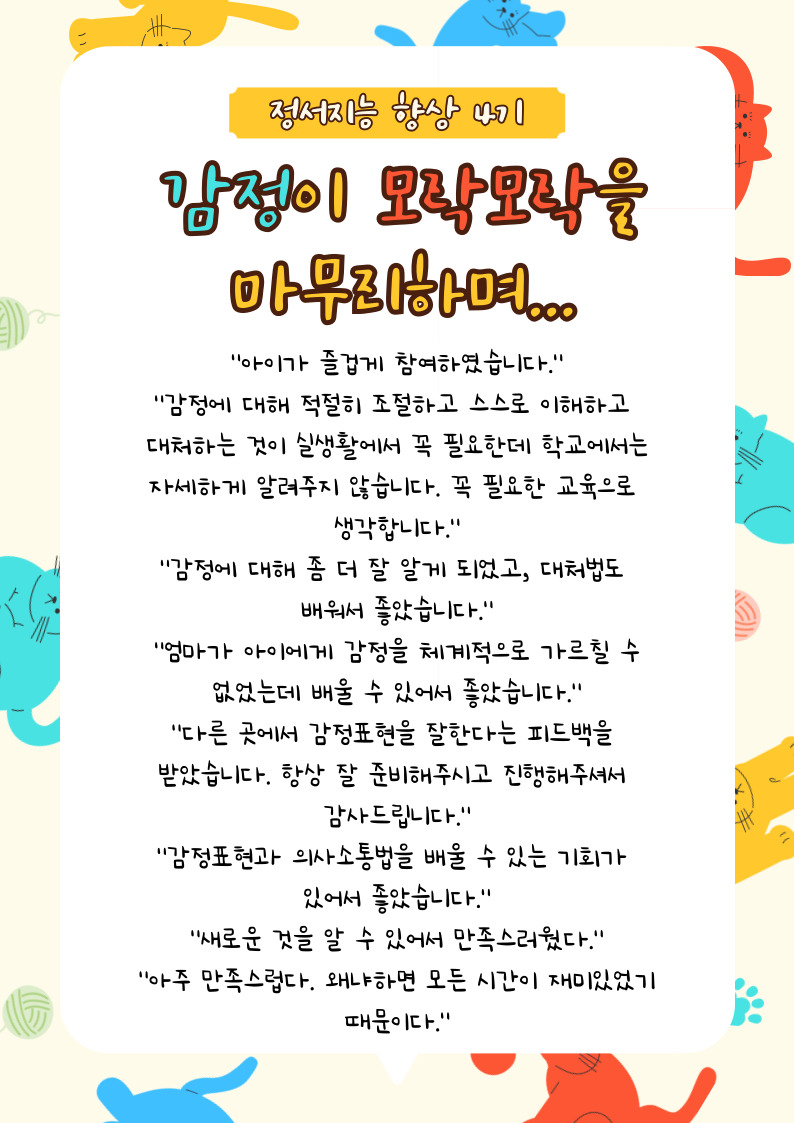 정서지능 향상 4기
감정이 모락모락을
마무리하며...
"아이가 즐겁게 참여하였습니다."
"감정에 대해 적절히 조절하고 스스로 이해하고
대처하는 것이 실생활에서 꼭 필요한데 학교에서는
자세하게 알려주지 않습니다. 꼭 필요한 교육으로
생각합니다."
"감정에 대해 좀 더 잘 알게 되었고, 대처법도
배워서 좋았습니다."
"엄마가 아이에게 감정을 체계적으로 가르칠 수
없었는데 배울 수 있어서 좋았습니다."
"다른 곳에서 감정표현을 잘한다는 피드백을
받았습니다. 항상 잘 준비해주시고 진행해주셔서
감사드립니다."
"감정표현과 의사소통법을 배울 수 있는 기회가
있어서 좋았습니다."
"새로운 것을 알 수 있어서 만족스러웠다."
"아주 만족스럽다. 왜냐하면 모든 시간이 재미있었기
때문이다."